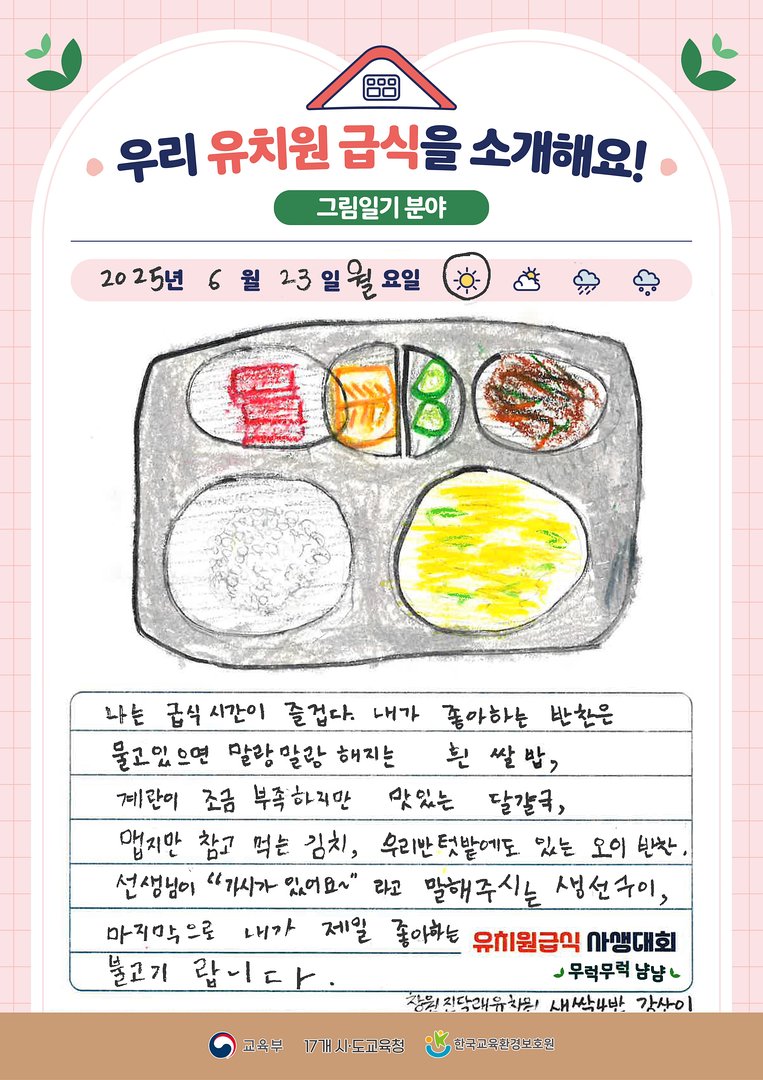 우리 유치원 급식을 소개해요!
그림일기 분야
2025년 6 월 23 일 월 요일
나는 급식 시간이 즐겁다. 내가 좋아하는 반찬은
물고있으면 말랑말랑 해지는 흰 쌀 밥,
계란이 조금 부족하지만 맛있는 달걀국,
맵지만 참고 먹는 김치, 우리반 텃밭에도 있는 오이 반찬.
선생님이 “가시가 있어요~" 라고 말해주시는 생선구이,
마지막으로 내가 제일 좋아하는
불고기 랍니다.
유치원급식 사생대회
무럭무럭 냠냠
창원진달래유치원 새싹4반 강산이
교육부 17개 시·도교육청 한국교육환경보호원